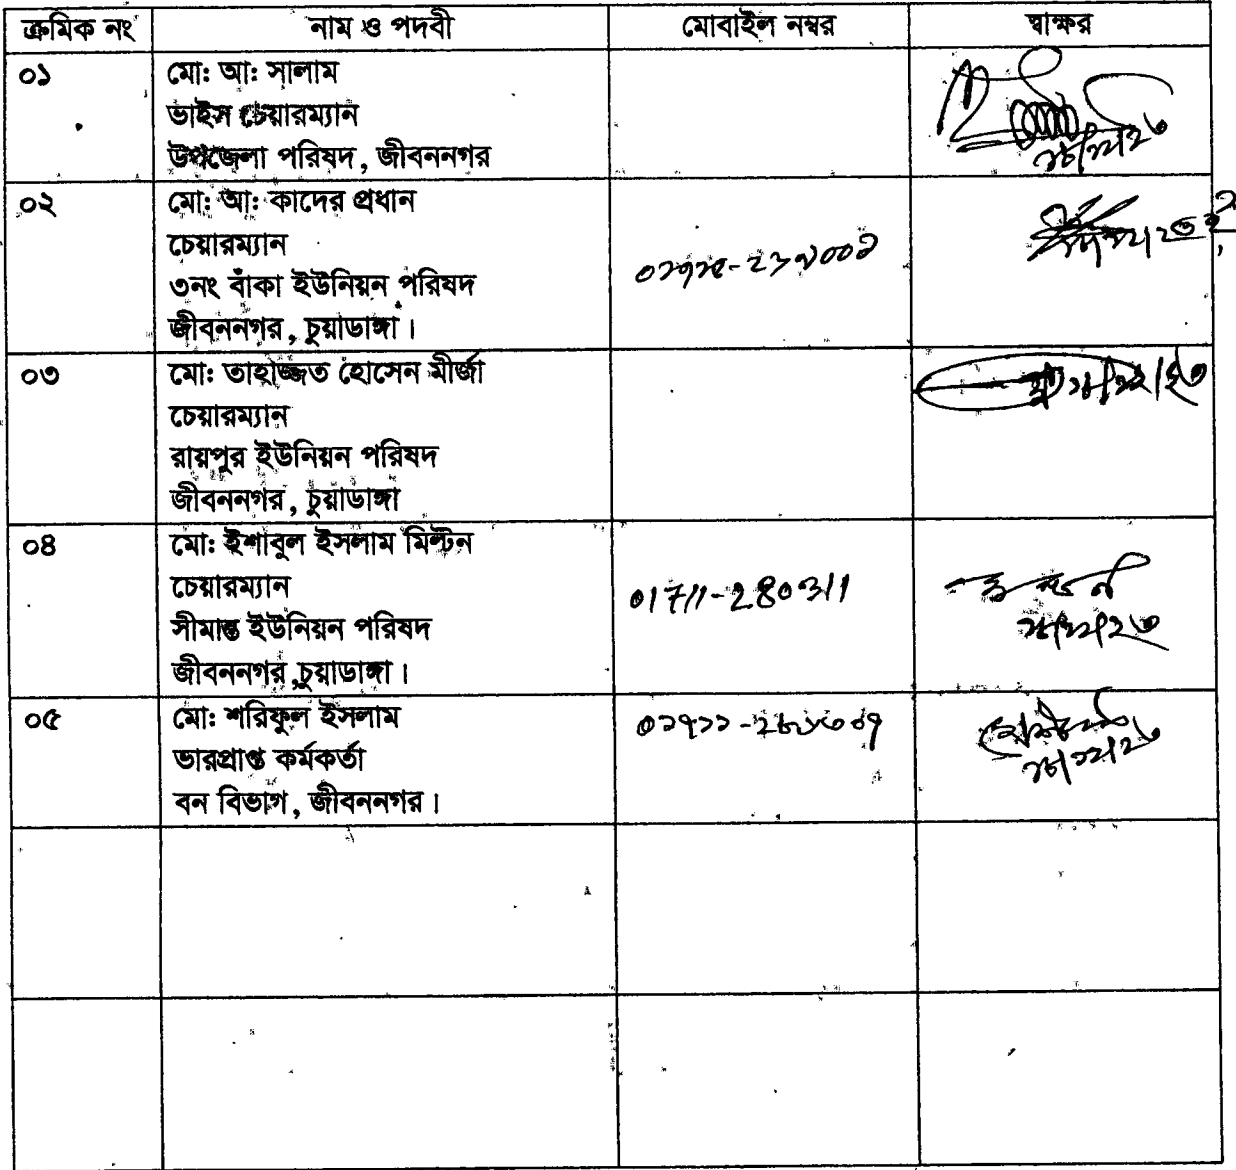 ক্রমিক নং নাম ও পদবী মোবাইল নম্বর স্বাক্ষর
০১ মো: আ: সালাম
ভাইস চেয়ারম্যান
উপজেলা পরিষদ, জীবননগর
০২ মো: আ: কাদের প্রধান
চেয়ারম্যান
৩নং বাঁকা ইউনিয়ন পরিষদ
জীবননগর, চুয়াডাঙ্গা।
০৩ মো: তাহাজ্জত হোসেন মীর্জা
চেয়ারম্যান
রায়পুর ইউনিয়ন পরিষদ
জীবননগর, চুয়াডাঙ্গা
০৪ মো: ইশাবুল ইসলাম মিল্টন
চেয়ারম্যান
01711-280311
সীমান্ত ইউনিয়ন পরিষদ
জীবননগর,চুয়াডাঙ্গা।
০৫ মো: শরিফুল ইসলাম
ভারপ্রাপ্ত কর্মকর্তা
বন বিভাগ, জীবননগর।